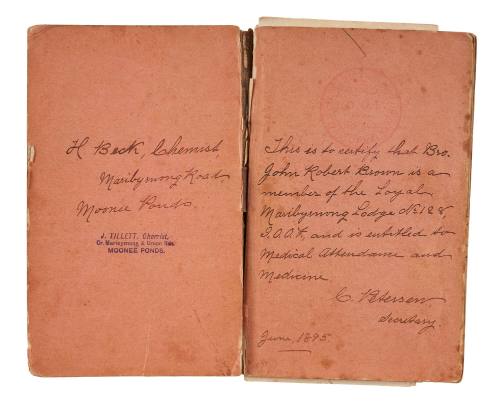 H. Beck, Chemist,
Maribyrnong Road
Moonee Ponds.
J. TILLETT, Chemist,
Cr. Maribyrnong & Union Rds.
MOONEE PONDS.
This is to certify that Bro.
John Robert Brown is a
member of the Loyal
Maribyrnong Lodge No 128,
I.O.O.F, and is entitled to
Medical Attendance and
Medicine
C. Petersen
Secretary.
June, 1895.